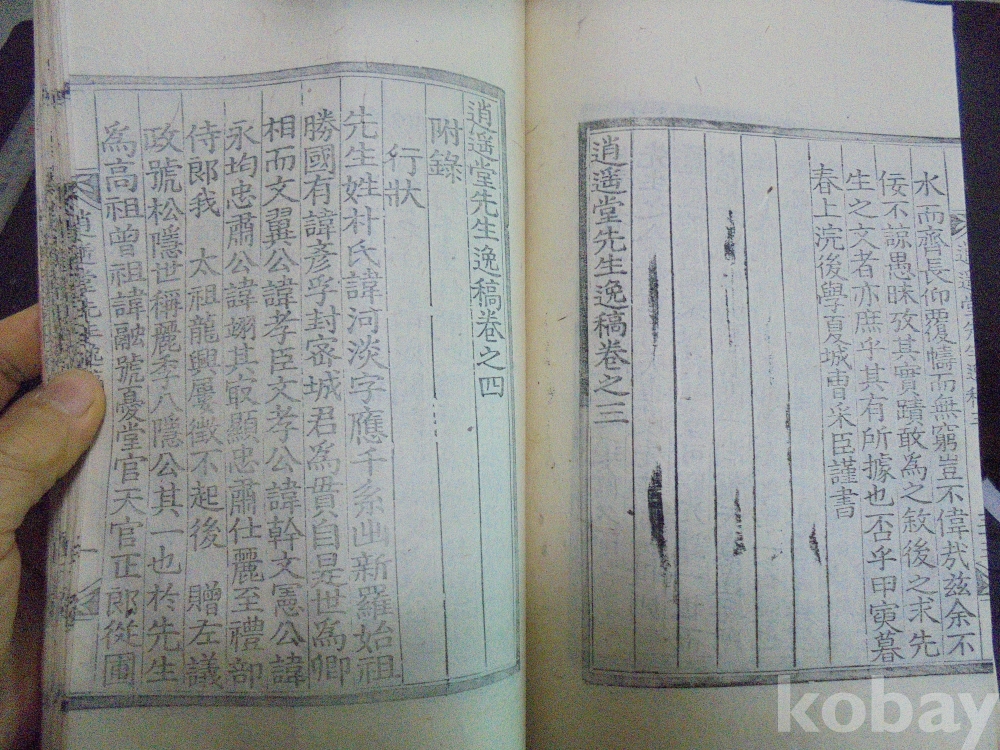 水而齊長仰覆幬而無窮豈不偉哉玆余不
佞不諒愚昧攷其實蹟敢為之敘後之求先
生之文者亦庶乎其有所據也否乎甲寅暮
春上浣後學夏城曺采臣謹書
逍遥堂先生逸稿卷之三
逍遥堂先生逸稿卷之四
附錄
行狀
先生姓朴氏諱河淡字應千系出新羅始祖
勝國有諱彥孚封密城君為貫自是世為卿
相而文翼公諱孝臣文孝公諱幹文憲公諱
永均忠肅公諱翊其最顯忠肅仕麗至禮部
侍郎我 太祖龍興屢徵不起後 贈左議
政號松隱世稱麗季八隱公其一也於先生
為高祖曾祖諱融號憂堂官天官正郎從圃
kobay